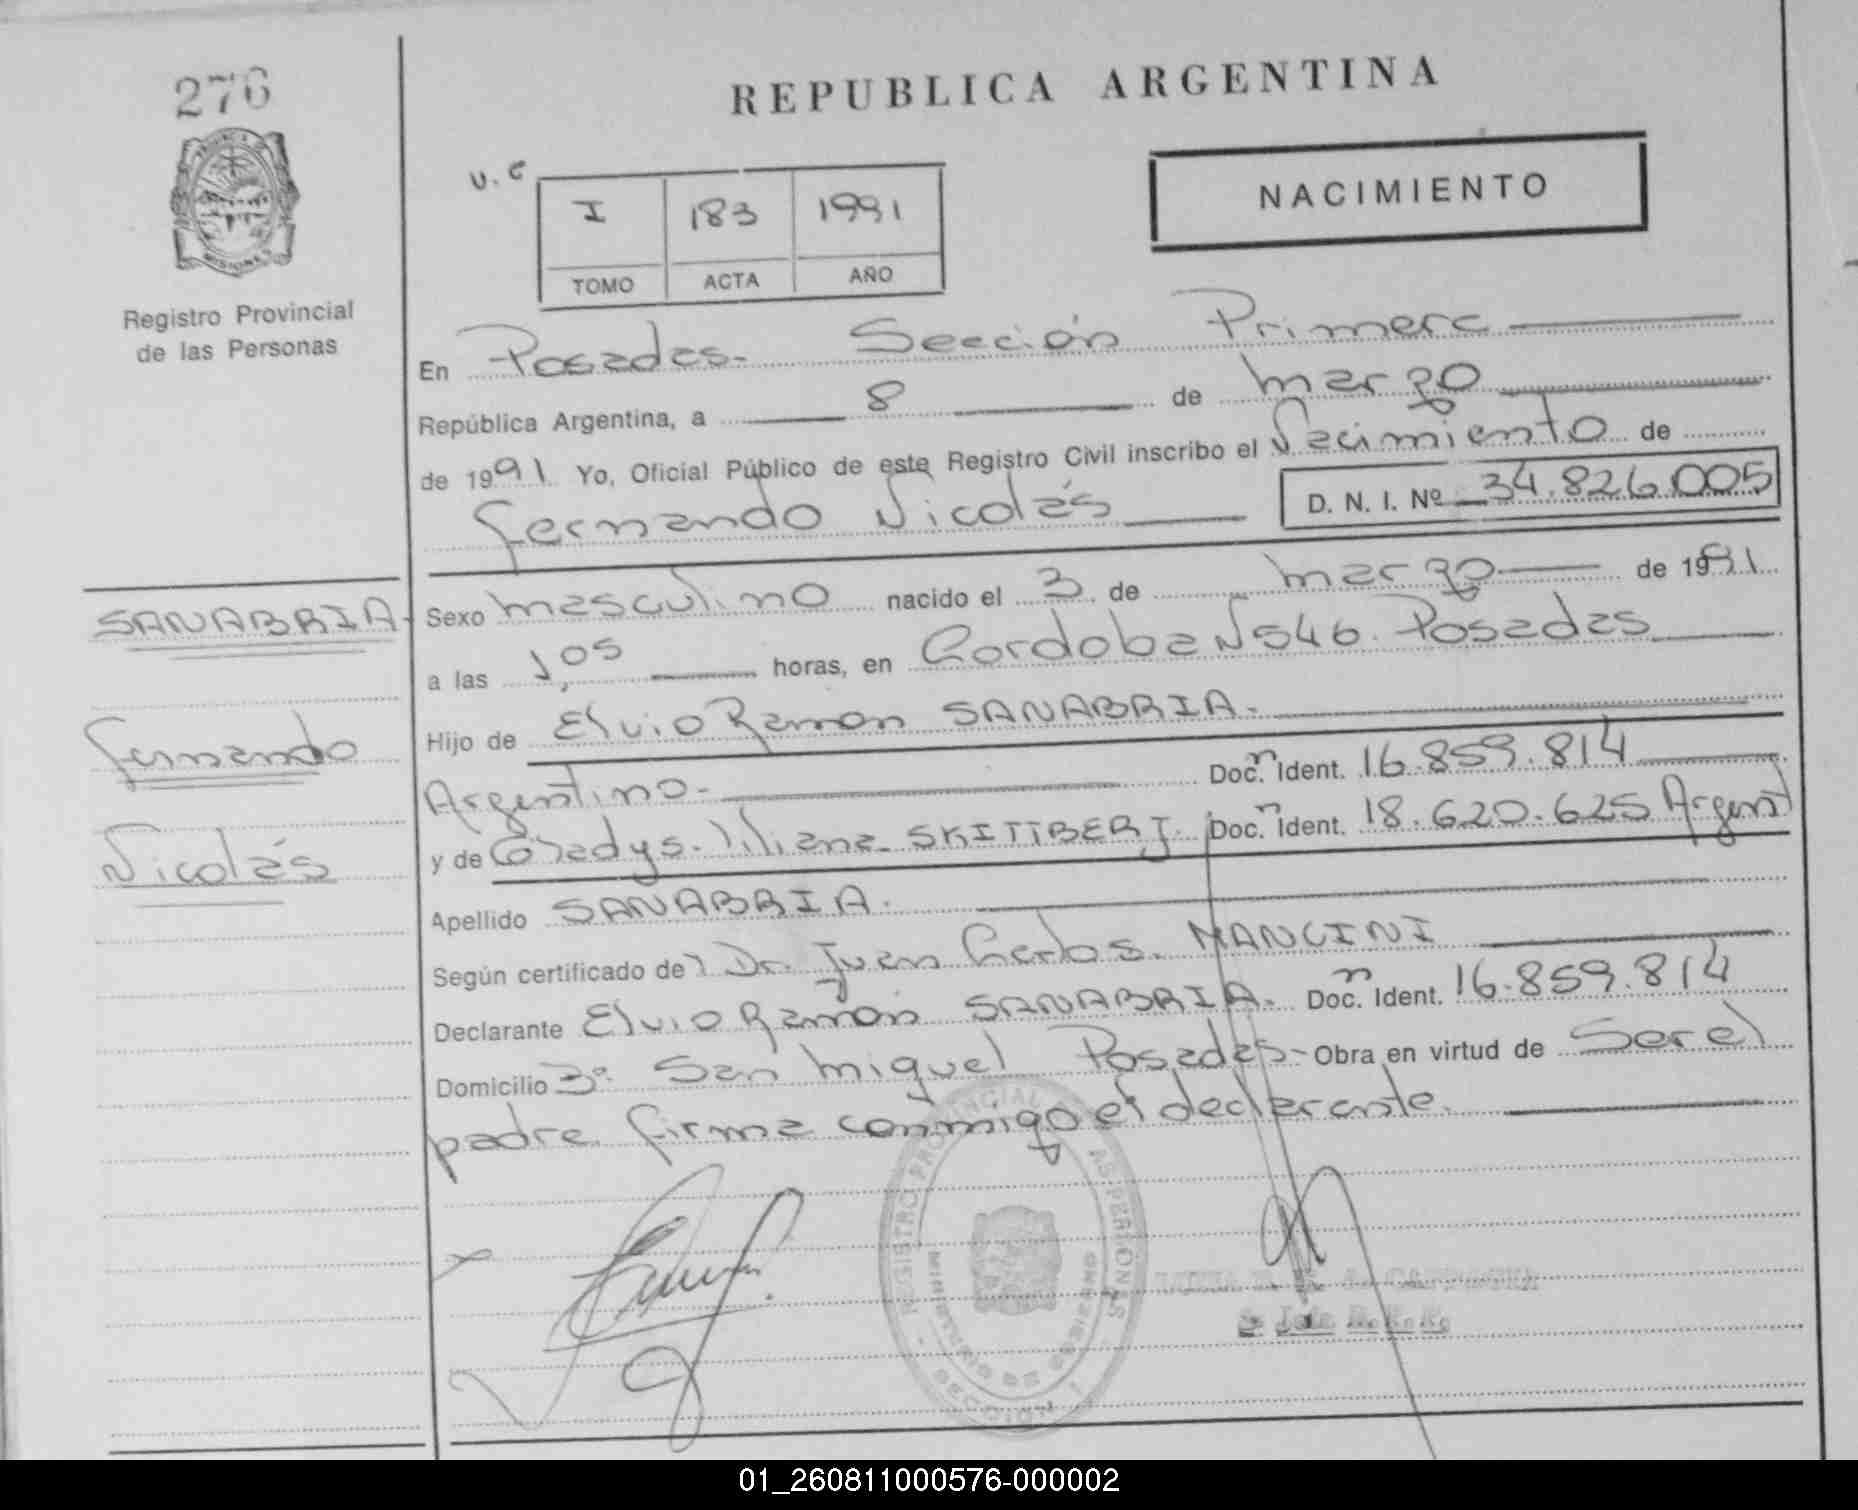 276
REPUBLICA ARGENTINA
PROVINCIA
MISIONES
Registro Provincial
de las Personas
U. C
I 183 1991
TOMO ACTA AÑO
NACIMIENTO
En Posadas. Sección Primera
República Argentina, a 8 de marzo
de 1991 Yo, Oficial Público de este Registro Civil inscribo el Nacimiento de
Fernando Nicolás D. N. I. Nº 34.826.005
SANABRIA
Fernando
Nicolás
Sexo masculino nacido el 3 de marzo de 1991
a las 1,05 horas, en Cordoba N 546. Posadas
Hijo de Elvio Ramon SANABRIA.
Argentino. Doc. n Ident. 16.859.814
y de Gladys. liliana. SKITTBERJ. Doc. n Ident. 18.620.625 Argent
Apellido SANABRIA.
Según certificado del Dr. Juan Carlos. MANCINI
Declarante Elvio Ramón SANABRIA. Doc. n Ident. 16.859.814
Domicilio 3º San Miguel Posadas- Obra en virtud de Ser el
padre. firma conmigo el declarante.
REGISTRO PROVINCIAL DE LAS PERSONAS
01_260811000576-000002